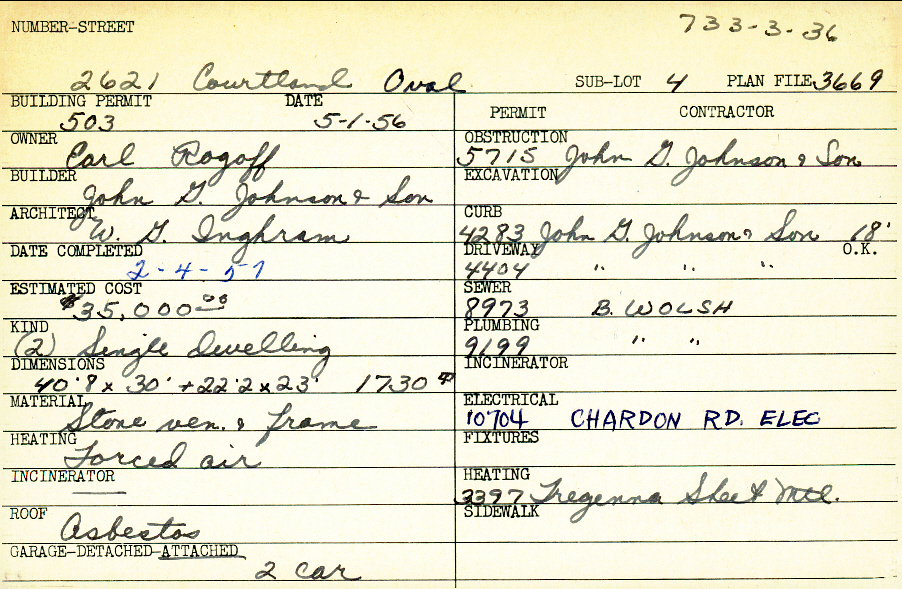 NUMBER-STREET 733-3-36
2621 Courtland Oval SUB-LOT 4 PLAN FILE 3669
BUILDING PERMIT DATE PERMIT CONTRACTOR
503 5-1-56
OWNER OBSTRUCTION
Carl Rogoff 5715 John G. Johnson & Son
BUILDER EXCAVATION
John G. Johnson & Son
ARCHITECT CURB
W. G. Inghram 4283 John G. Johnson & Son 18'
DATE COMPLETED DRIVEWAY O.K.
2-4-57 4404 " " "
ESTIMATED COST SEWER
$35,000.00 8973 B. WOLSH
KIND PLUMBING
(2) Single Dwelling 9199 " "
DIMENSIONS INCINERATOR
40'8 x 30' + 22'2 x 23' 1730 #
MATERIAL ELECTRICAL
Stone ven. & frame 10704 CHARDON RD. ELEC
HEATING FIXTURES
Forced air
INCINERATOR HEATING
— 3397 Tregenna Sheet Mtl.
ROOF SIDEWALK
Asbestos
GARAGE-DETACHED-ATTACHED
2 car